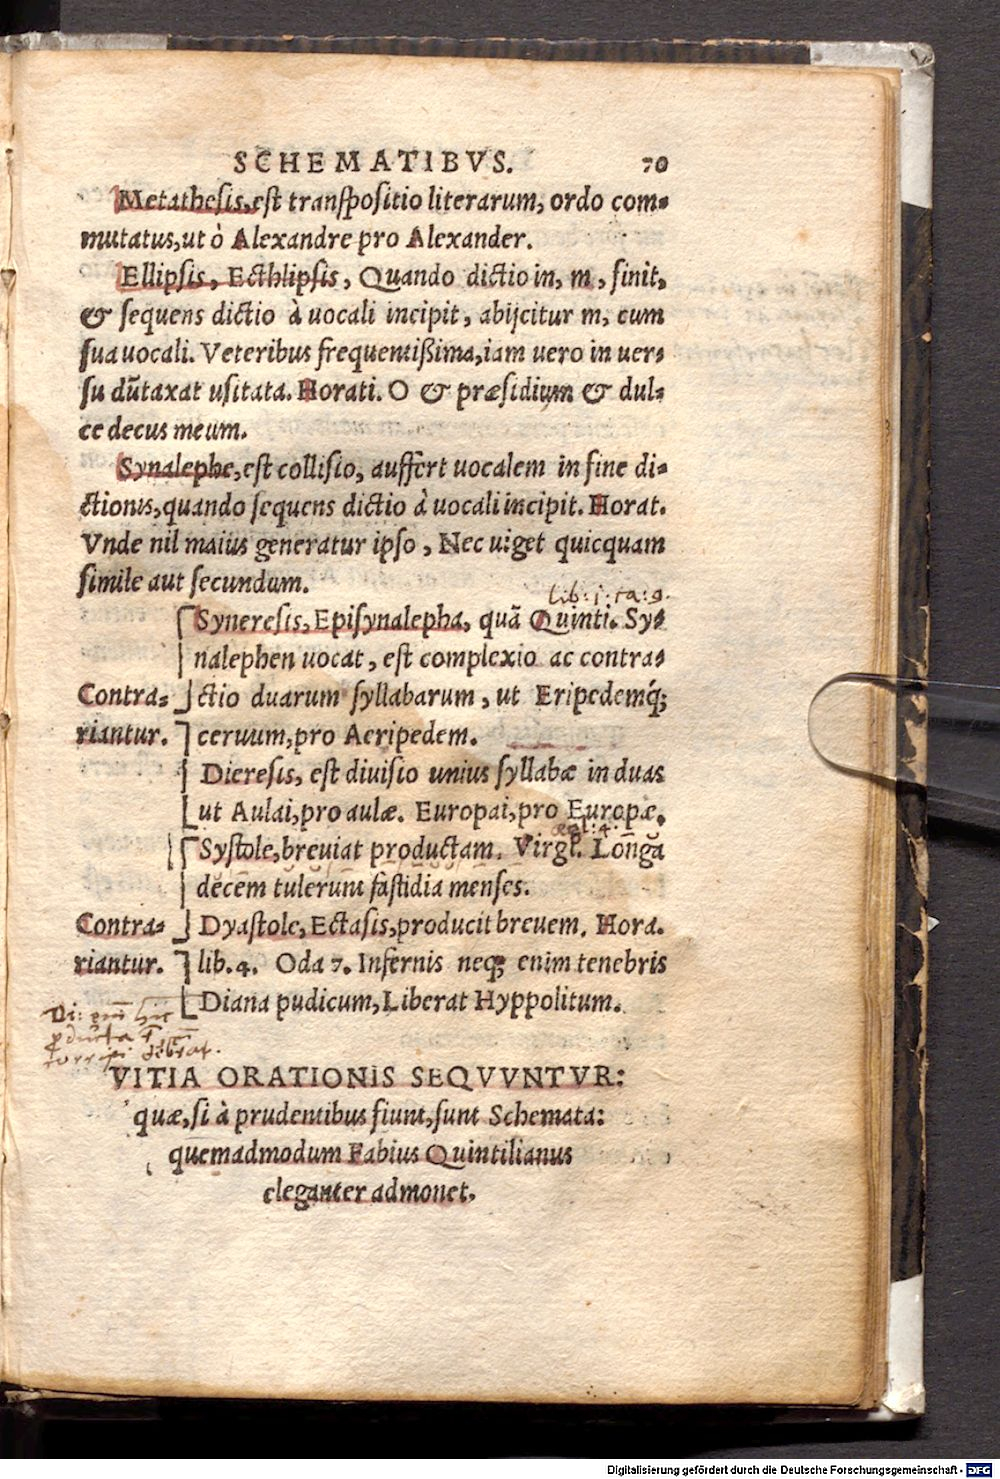 SCHEMATIBVS. 70
Metathesis, est transpositio literarum, ordo com-
mutatus, ut ò Alexandre pro Alexander.
Ellipsis, Ecthlipsis, Quando dictio in, m, finit,
& sequens dictio à uocali incipit, abijcitur m, cum
sua uocali. Veteribus frequentißima, iam uero in uer-
su dūtaxat usitata. Horati. O & præsidium & dul-
ce decus meum.
Synalephe, est collisio, auffert uocalem in fine di-
ctionis, quando sequens dictio à uocali incipit. Horat.
Vnde nil maius generatur ipso, Nec uiget quicquam
simile aut secundum.
lib: 1: ca: 9.
Syneresis, Episynalepha, quā Quinti. Sy-
nalephen uocat, est complexio ac contra-
Contra- ctio duarum syllabarum, ut Eripedemq́;
riantur. ceruum, pro Aeripedem.
Dieresis, est diuisio unius syllabæ in duas
ut Aulai, pro aulæ. Europai, pro Europæ.
Systole, breuiat productam. Virgi. Longa
decem tulerunt fastidia menses.
Contra- Dyastole, Ectasis, producit breuem. Hora.
riantur. lib. 4. Oda 7. Infernis neq; enim tenebris
Diana pudicum, Liberat Hyppolitum.
Di: hic
VITIA ORATIONIS SEQVVNTVR:
quæ, si à prudentibus fiunt, sunt Schemata:
quemadmodum Fabius Quintilianus
eleganter admonet.
Digitalisierung gefördert durch die Deutsche Forschungsgemeinschaft - DFG